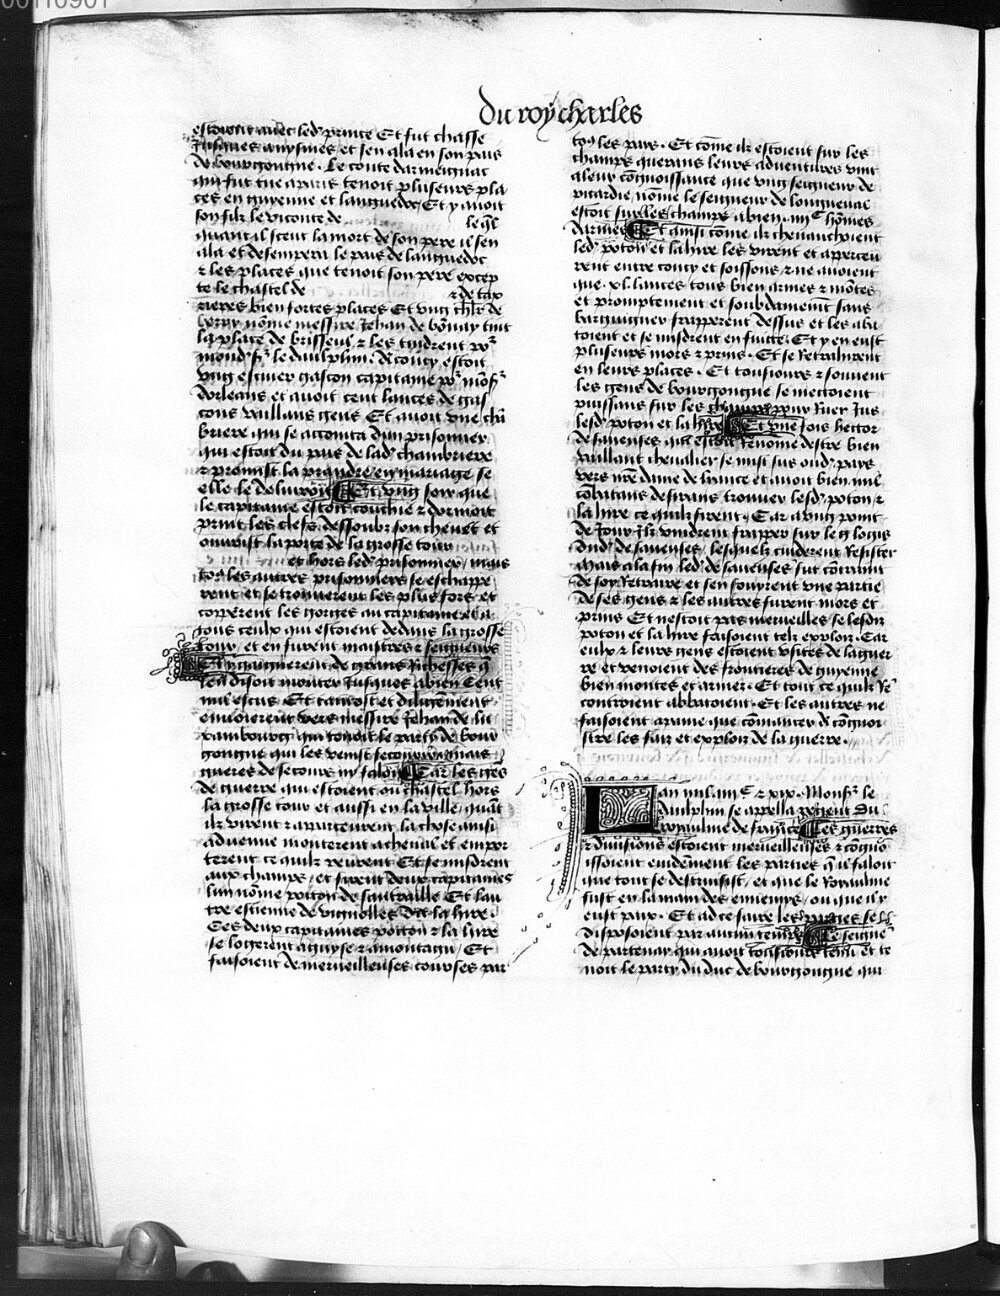 00110901
du roy charles
estoient avec led prince Et fut chasse
Jusques a nysmes et sen ala en son pais
de bourgoingne . Le conte darmeignac
qui fut tue a paris tenoit pluseurs pla
ces en guyenne et languedoc Et y avoit
son filz le viconte de le ql
quant il sceut la mort de son pere il sen
ala et desempera le pais de languedoc
& les places que tenoit son pere excep
te le chastel de & de
rieres bien fortes places Et ung chlr de
berry nōme messire Jehan de bōnay tint
la place de & les tindrent por
mond sr le daulphin . A coucy estoit
ung escuier gascon capitaine por mōsr
dorleans et avoit cent lances de gas
cons vaillans gens Et avoit une chā
briere qui se acointa dun prisonnier
qui estoit du pais de lad chambriere
& promist la prandre en mariage se
elle le delivroit Et ung soir que
le capitaine estoit couchie & dormoit
print les clefz dessoubz son chevet et
ouvrist la porte de la grosse tour
et hors led prisonnier mais
tos les autres prisonniers se eschappe
rent et se trouverent les plus fors et
copperent les gorges au capitaine et a
tous ceulx qui estoient dedans la grosse
tour et en furent maistres & seigneurs
Et y gaignerent de grans Richesses q
len disoit monter Jusques a bien cent
mil escus Et tantost et diligēment
envoierent vers messire Jehan de lu
xambourcg qui tenoit le party de bour
gongne qui les venist secourir mais
gueres de secours ny faloit Car les gēs
de guerre qui estoient ou chastel hors
la grosse tour et aussi en la ville quāt
ilz virent & apparceurent la chose ainsi
advenue monterent a cheval et empor
terent ce quilz peurent Et se misdrent
aux champs et firent deux capitaines
lun nōme poiton de saintraille Et lau
tre estienne de vignolles dit la hire .
Ces deux capitaines poiton & la hire
se logerent a guyse & a montagu Et
faisoient de merveilleuses courses par
tos les pais . Et cōme ilz estoient sur les
champs querans leurs adventures vint
a leur cōgnoissance que ung seigneur de
picardie nōme le seigneur de longueval
estoit sur les champs a bien iiii c hōmes
darmes Et ainsi cōme ilz chevauchoient
led poton et la hire les virent et apperceu
rent entre coucy et soissons & ne avoient
que xl lances tous bien armes & mōtes
et promptement et soubdainemt sans
barguigner frapperent dessus et les aba
toient et se misdrent en fuitte Et y en eust
pluseurs mors & prins . Et se Retrairent
en leurs places . Et tousiours & souvent
les gens de bourgongne se mectoient
puissans sur les champs pour Ruer Jus
lesd poton et la hire Et une fois hector
de saveuses qui estoit Renōme destre bien
vaillant chevalier se mist sus oud pays
vers nre dame de liance et avoit bien mil
cōbatans desirans trouver lesd poton &
la hire ce quilz firent . Car a ung point
de Jour Ilz vindrent frapper sur le logis
dud de saveuses lesquelz cuiderent Resister
Mais a la fin led de saveuses fut cōtraint
de soy Retraire et sen fouyrent une partie
de ses gens & les autres furent mors et
prins Et nestoit pas merveilles se lesdiz
poton et la hire faisoient telz exploiz Car
eulx & leurs gens estoient usites de la guer
re et venoient des frontieres de guyenne
bien montes et armez . Et tout ce quilz Re
contrerent abbatoient . Et les autres ne
faisoient a rame que cōmancer de cōgnoi
stre les faiz et exploiz de la guerre .
Lan mil iiii c & xix . Monsr le
daulphin se appella regent du
royaulme de france Les guerres
& divisions estoient merveilleuses & cōgno
issoient evidēment les parties q il faloit
que tout se destruisist et que le Royaulme
fust en la main des ennemys ou que il y
eust paix . Et ad ce faire les princes se
disposoient par aucun temps Le seigne
de partenay qui avoit tousiours tenu et te
noit le party du duc de bourgongne qui